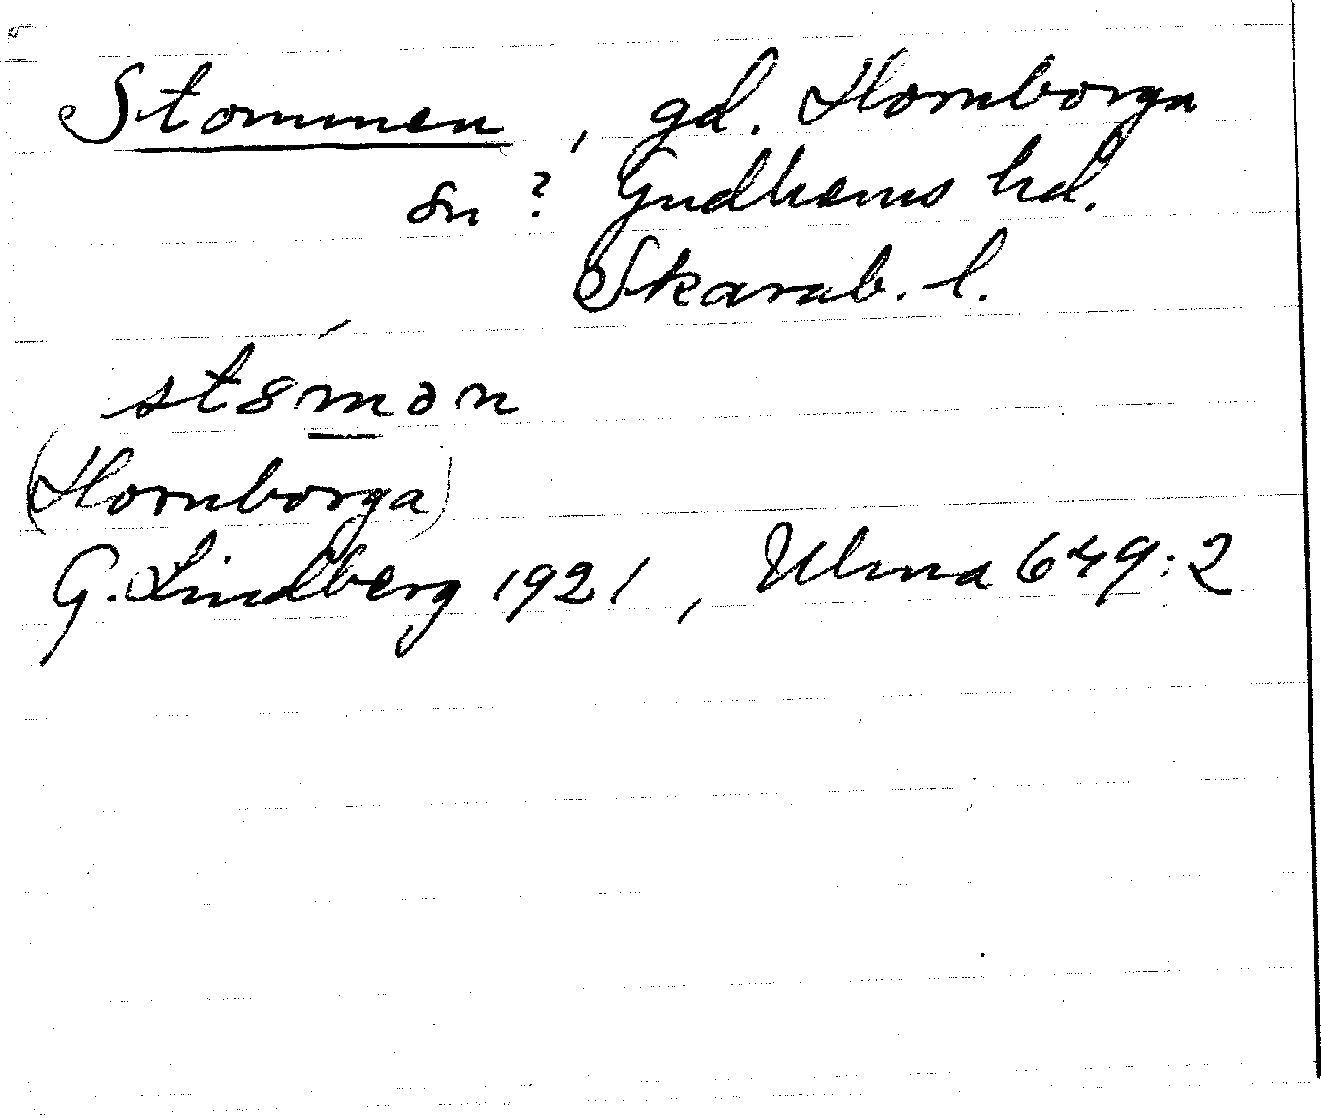 Stommen, gd. Hornborga
sn? Gudhems hd.
Skarab. l.
st8mən
(Hornborga)
G. Lindberg 1921, Ulma 649:2